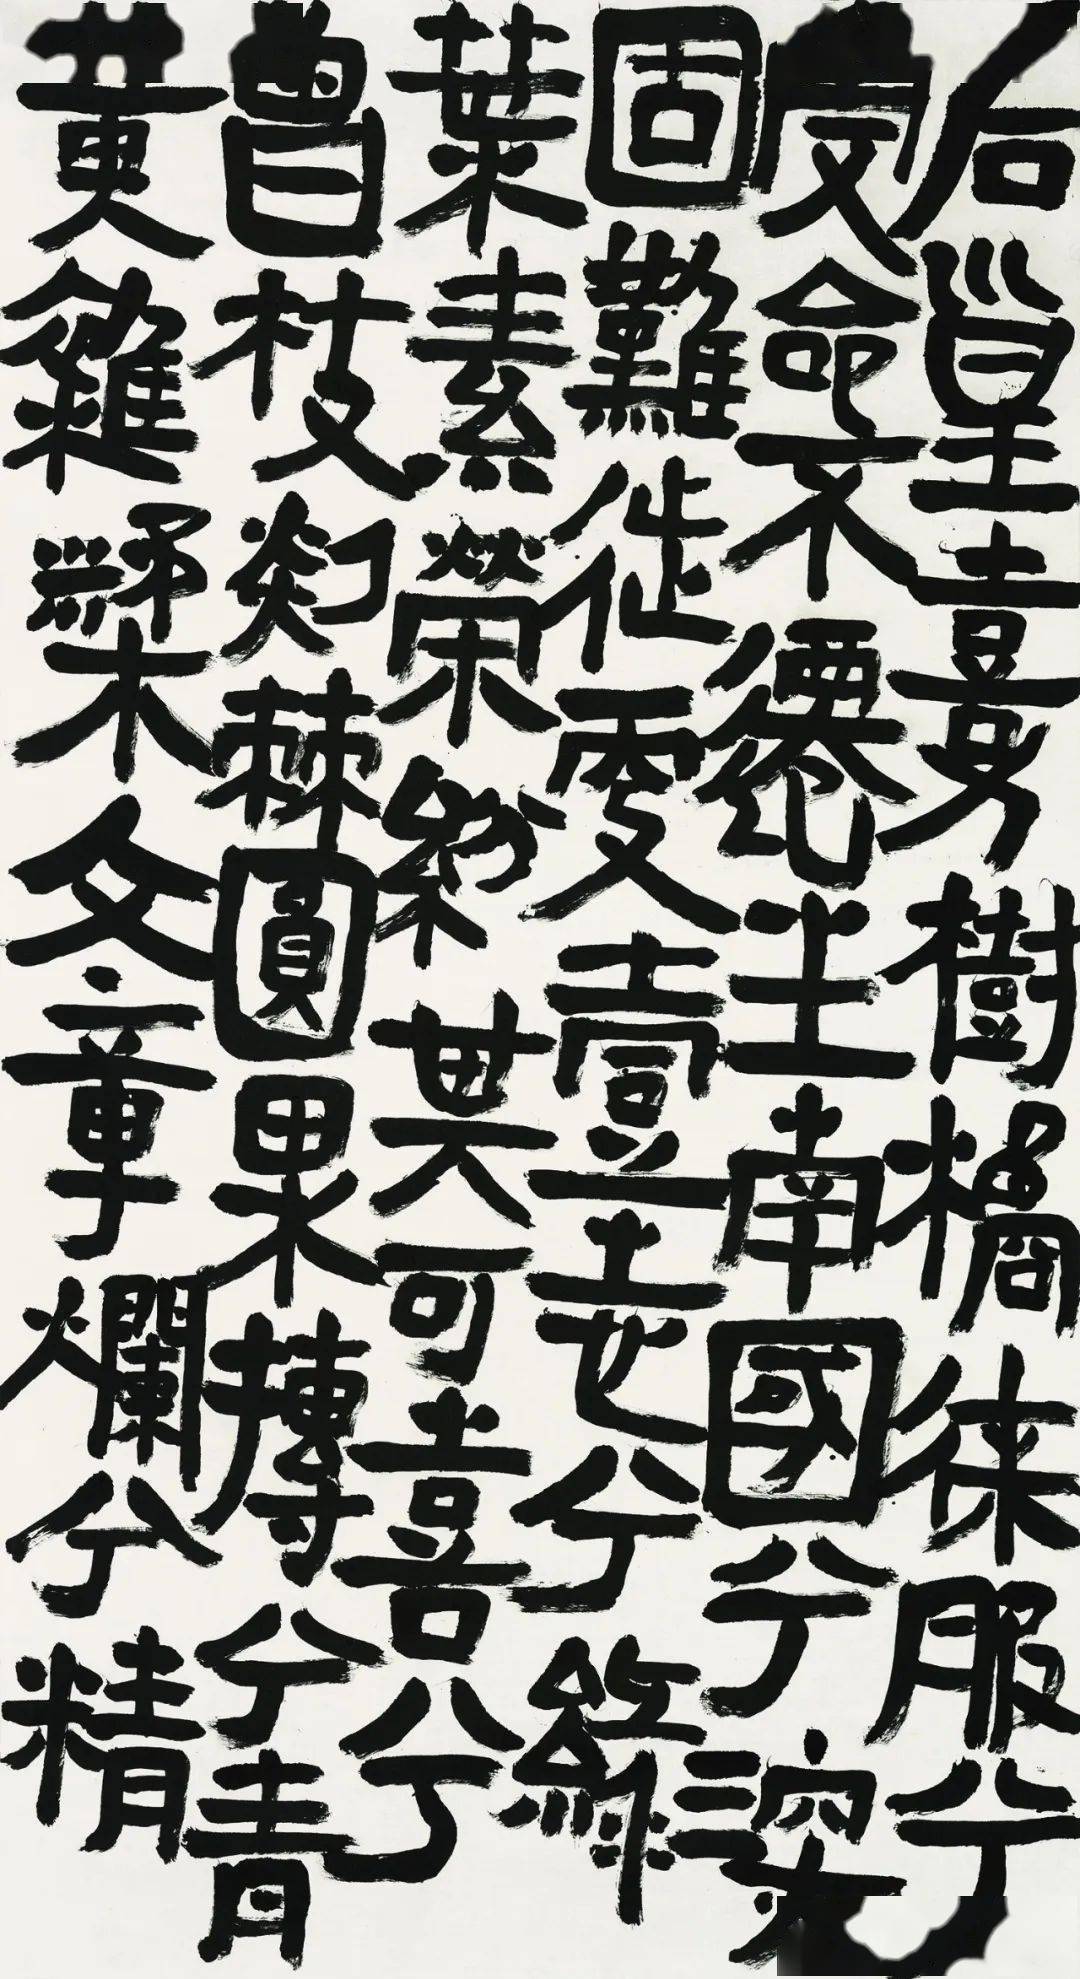 后皇嘉樹橘徠服兮
受命不遷生南國兮深
固難徙更壹志兮綠
葉素榮紛其可喜兮
曾枝剡棘圓果摶兮青
黃雜糅文章爛兮精